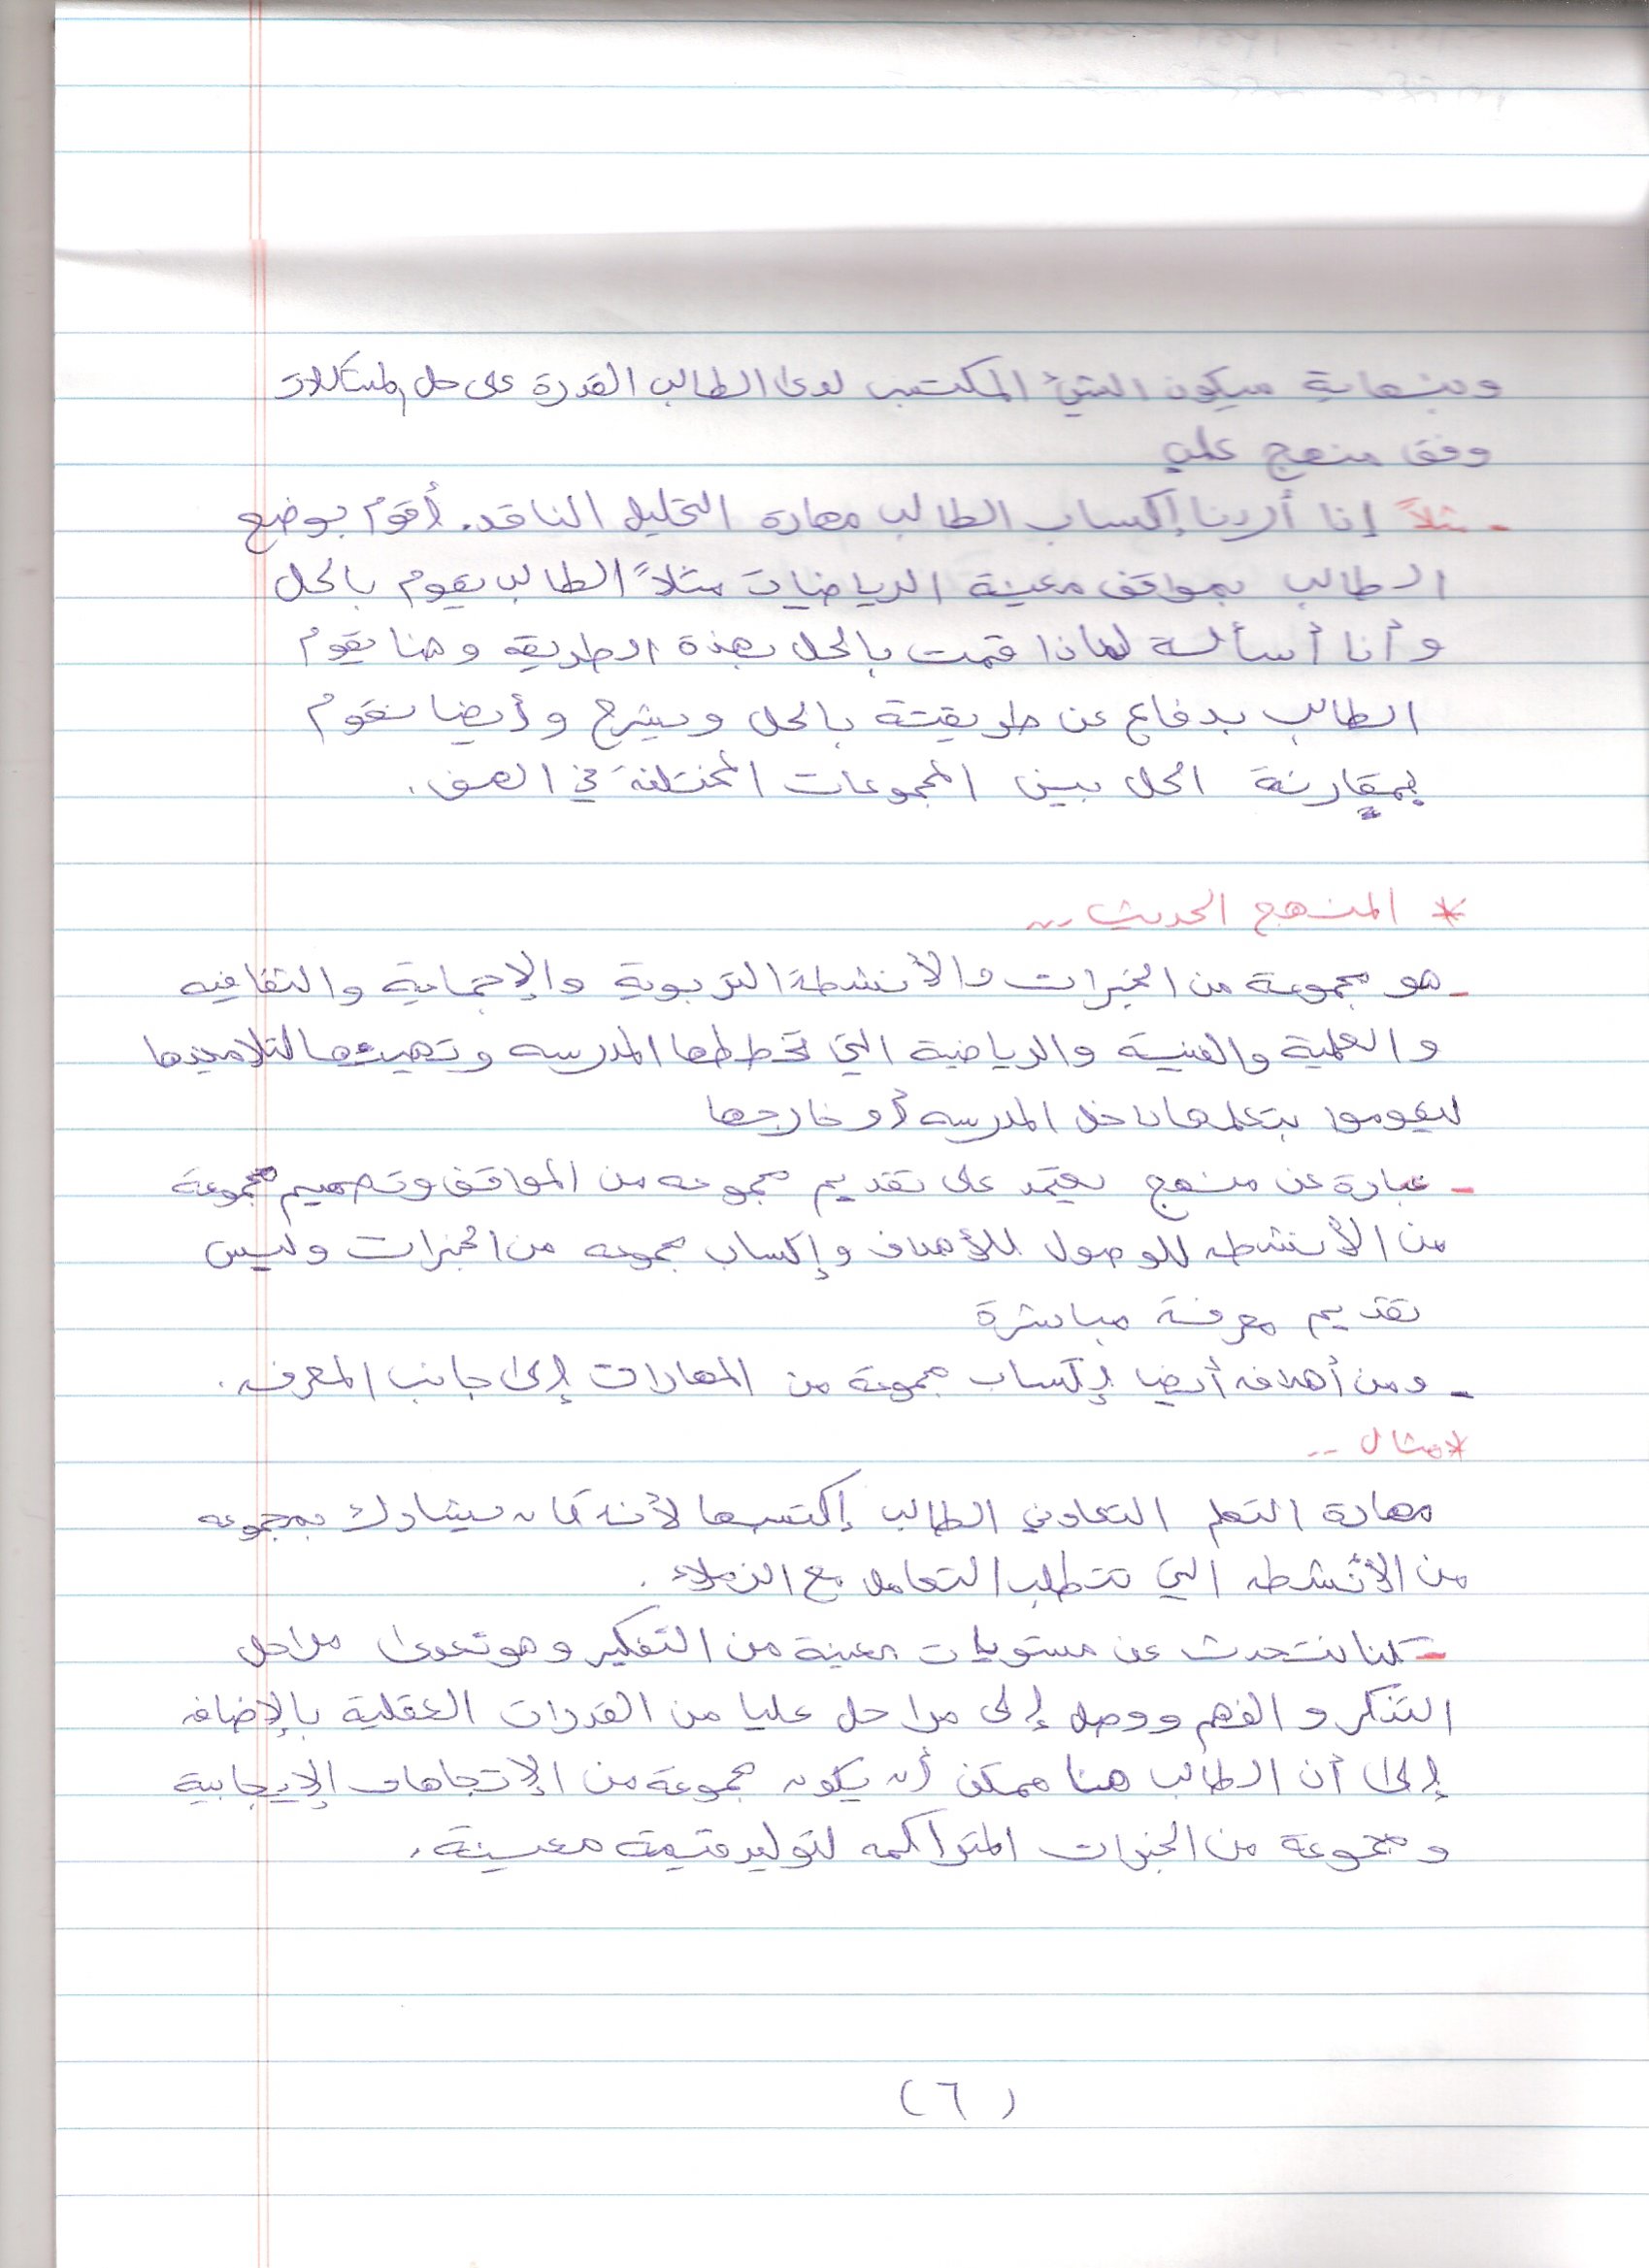 وبنهاية سيكون الشيئ المكتسب لدى الطالب القدرة على حل المشكلات
وفق منهج علمي
- مثلاً إذا أردنا إكساب الطالب مهارة التحليل الناقد. أقوم بوضع
الطالب بمواقف معينة الرياضيات مثلاً الطالب يقوم بالحل
وأنا أسأله لماذا قمت بالحل بهذة الطريقه وهنا يقوم
الطالب بدفاع عن طريقتة بالحل ويشرح وأيضا نقوم
بمقارنة الحل بين المجموعات المختلفة في الصف.
* المنهج الحديث ..
- هو مجموعة من الخبرات والأنشطة التربوية والإجتماعية والثقافيه
والعلمية والفنية والرياضية التي تخططها المدرسه وتهيئها لتلاميذها
ليقوموا بتعلمها داخل المدرسه أو خارجها
- عبارة عن منهج يعتمد على تقديم مجموعه من المواقف وتصميم مجموعة
من الأنشطه للوصول للأهداف وإكساب مجموعه من الخبرات وليس
تقديم معرفة مباشرة
- ومن أهدافه أيضا إكساب مجموعة من المهارات إلى جانب المعرفه.
* مثال ..
مهارة التعلم التعاوني الطالب إكتسبها لأنه كان يشارك بمجموعه
من الأنشطه التي تتطلب التعامل مع الزملاء.
- كنا نتحدث عن مستويات معينة من التفكير وهو تعدى مراحل
التذكر والفهم ووصل إلى مراحل عليا من القدرات العقلية بالإضافه
إلى أن الطالب هنا ممكن أن يكون مجموعة من الإتجاهات الإيجابية
ومجموعة من الخبرات المتراكمه لتوليد قيمة معينة.
(٦)